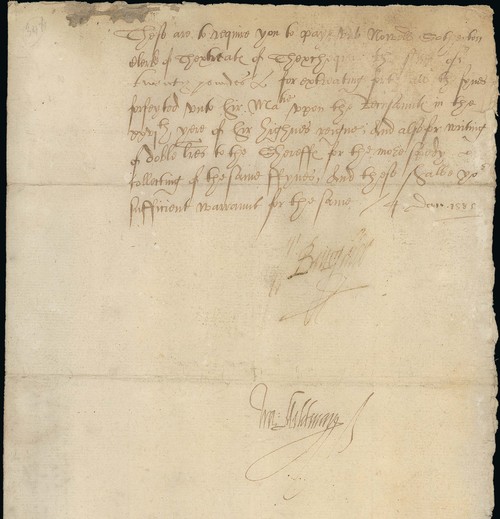 These are to require you to paye unto
Clerk of Thextreats of Thexchequer the some of
twenty poundes for extreating all the fynes
forfeyted unto her Matie upon the in the
xxvjth yere of her highnes reigne, And also for writing
of doble lres to the Shereffe for the more spedy
collecting of the same ffynes, And these shalbe yor
sufficient warraunt for the same / 4 1585
W Burghley
Wa: Mildmay